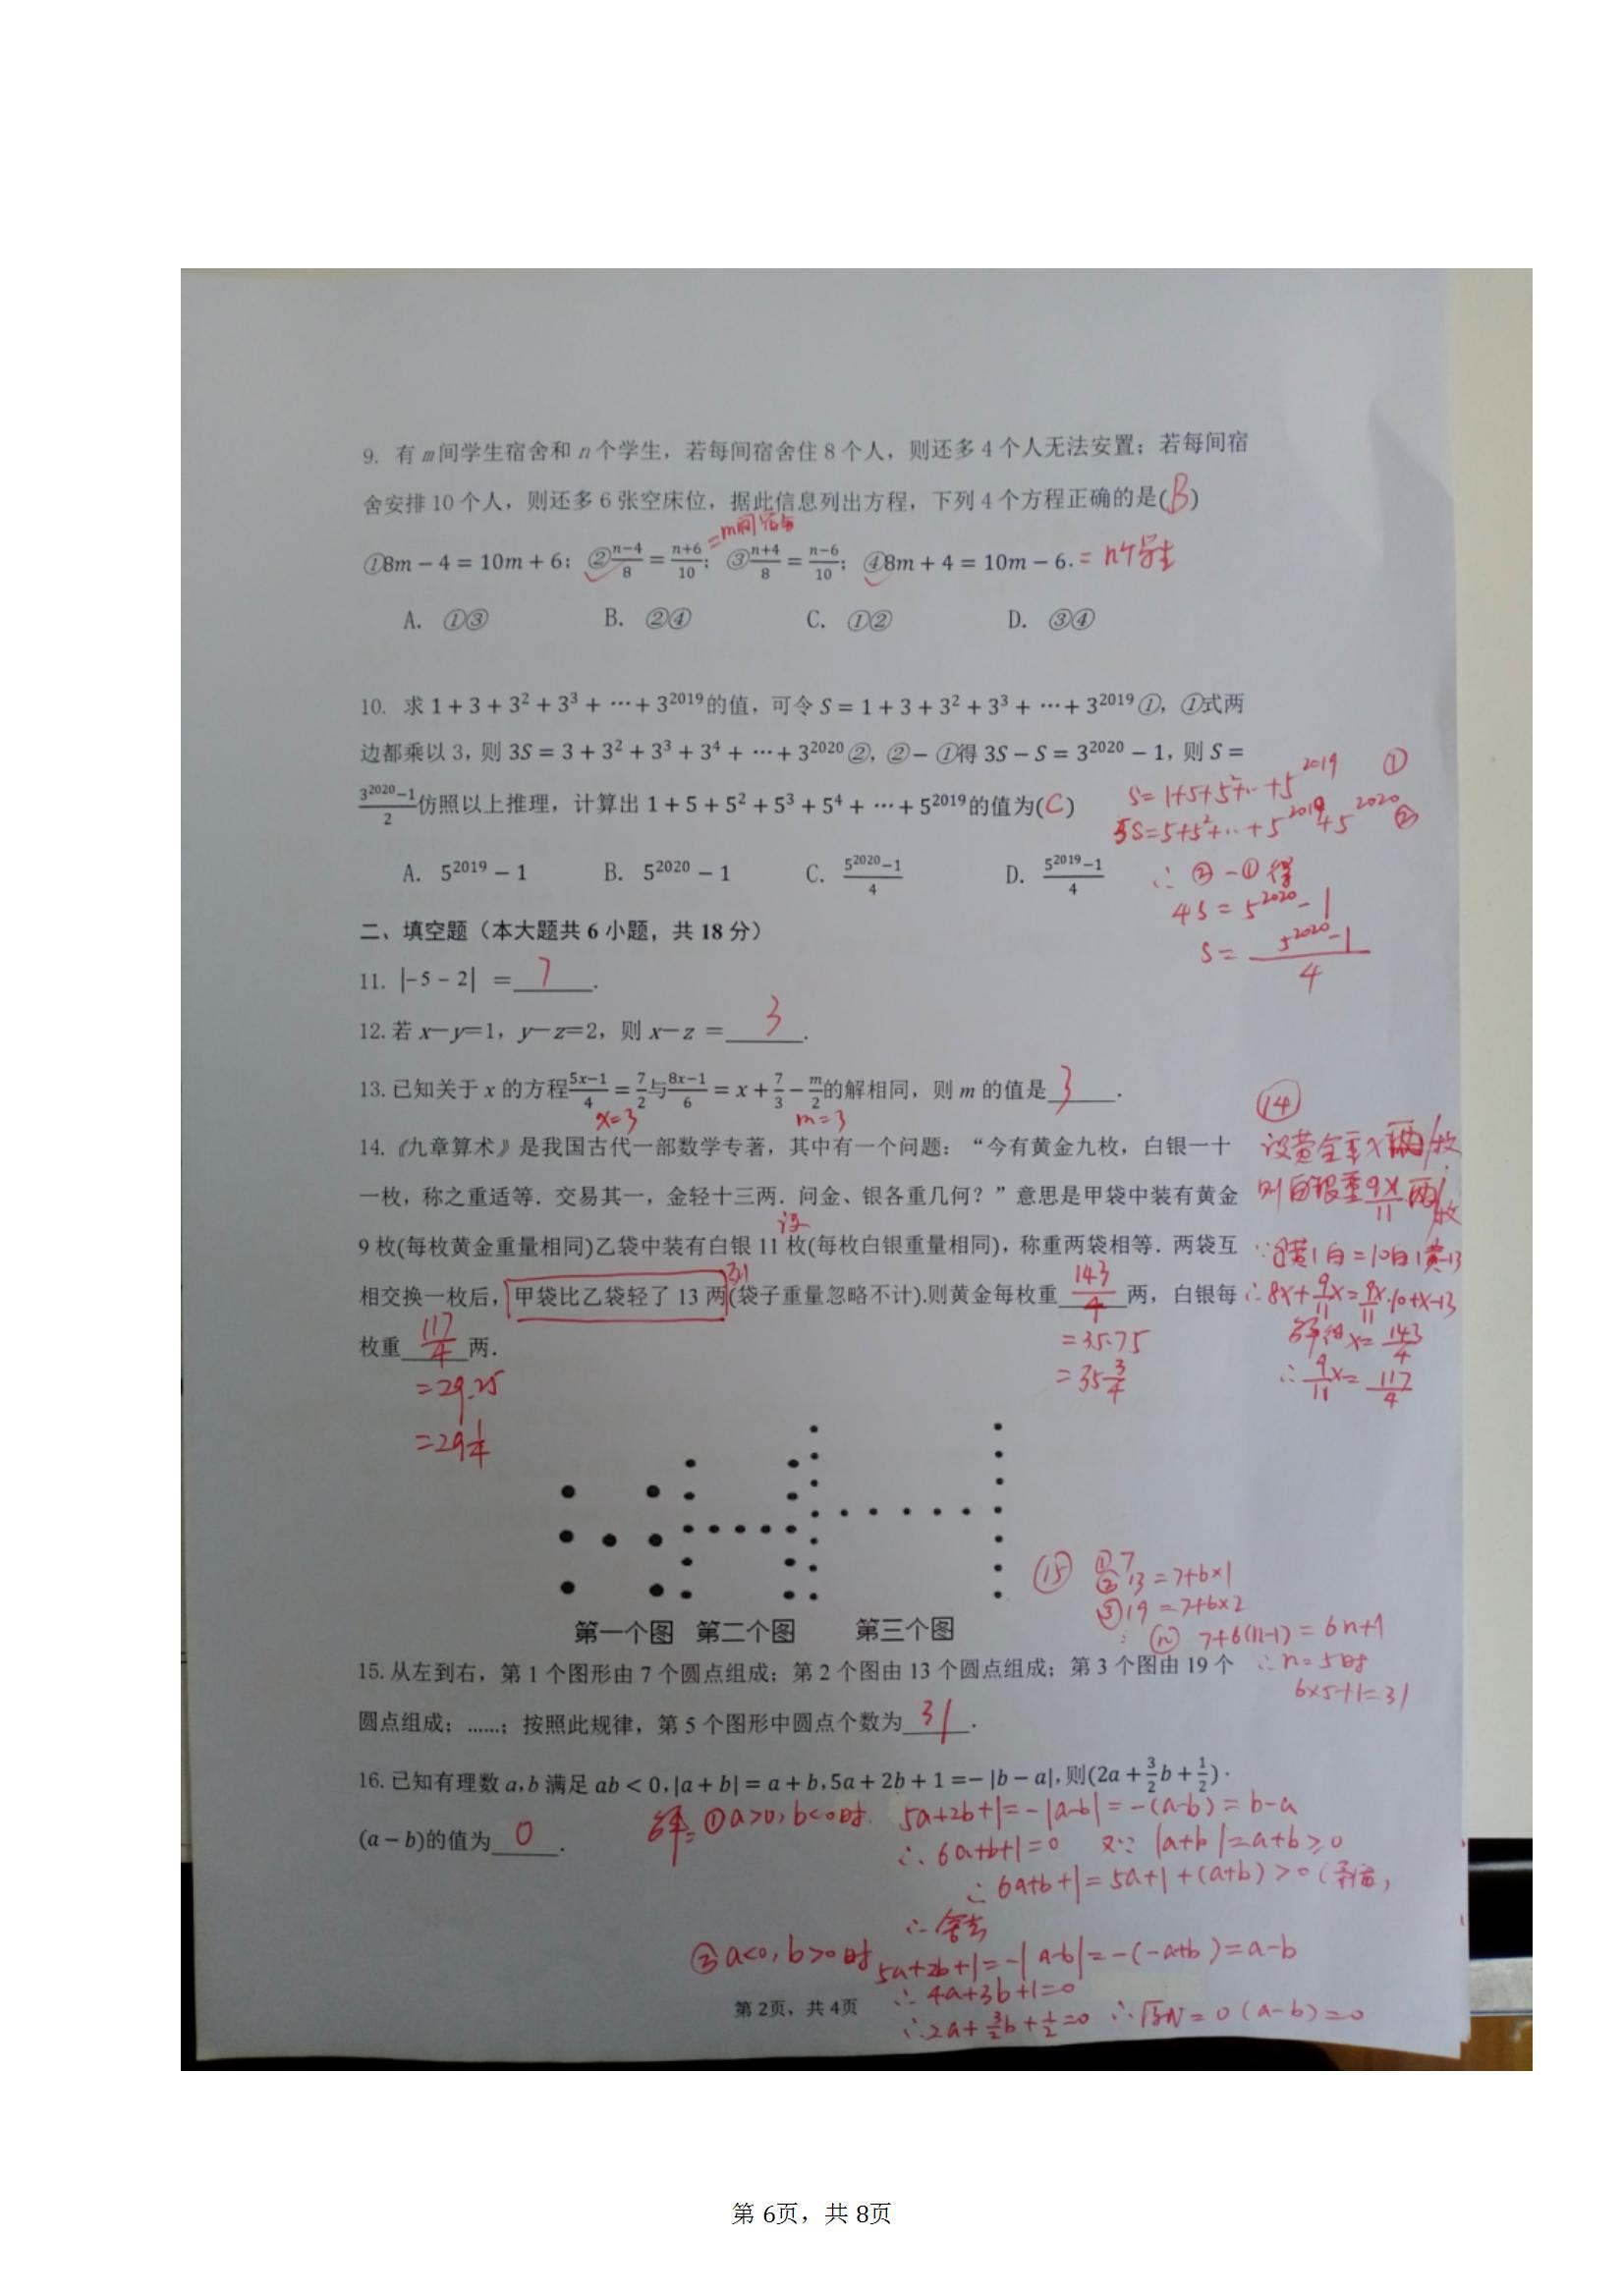 9. 有 m 间学生宿舍和 n 个学生，若每间宿舍住 8 个人，则还多 4 个人无法安置；若每间宿
舍安排 10 个人，则还多 6 张空床位，据此信息列出方程，下列 4 个方程正确的是(B)
=m间宿舍
①8m − 4 = 10m + 6；②(n−4)/8 = (n+6)/10；③(n+4)/8 = (n−6)/10；④8m + 4 = 10m − 6. = n个学生
A. ①③ B. ②④ C. ①② D. ③④
10. 求 1 + 3 + 3² + 3³ + ⋯ + 3²⁰¹⁹ 的值，可令 S = 1 + 3 + 3² + 3³ + ⋯ + 3²⁰¹⁹ ①，①式两
边都乘以 3，则 3S = 3 + 3² + 3³ + 3⁴ + ⋯ + 3²⁰²⁰ ②，②− ①得 3S − S = 3²⁰²⁰ − 1，则 S =
(3²⁰²⁰−1)/2 仿照以上推理，计算出 1 + 5 + 5² + 5³ + 5⁴ + ⋯ + 5²⁰¹⁹ 的值为(C)
S=1+5+5²+⋯+5²⁰¹⁹ ①
5S=5+5²+⋯+5²⁰¹⁹+5²⁰²⁰ ②
∴ ②−①得
4S=5²⁰²⁰−1
S=(5²⁰²⁰−1)/4
A. 5²⁰¹⁹ − 1 B. 5²⁰²⁰ − 1 C. (5²⁰²⁰−1)/4 D. (5²⁰¹⁹−1)/4
二、填空题（本大题共 6 小题，共 18 分）
11. |−5 − 2| = 7 .
12. 若 x−y=1，y−z=2，则 x−z = 3 .
13. 已知关于 x 的方程(5x−1)/4 = 7/2 与(8x−1)/6 = x + 7/3 − m/2 的解相同，则 m 的值是 3 .
x=3 m=3
14.《九章算术》是我国古代一部数学专著，其中有一个问题：“今有黄金九枚，白银一十
一枚，称之重适等．交易其一，金轻十三两．问金、银各重几何？”意思是甲袋中装有黄金
9 枚(每枚黄金重量相同)乙袋中装有白银 11 枚(每枚白银重量相同)，称重两袋相等．两袋互
相交换一枚后，甲袋比乙袋轻了 13 两(袋子重量忽略不计).则黄金每枚重 143/4 两，白银每
枚重 117/4 两．
=35.75
=35 3/4
=29.25
=29 1/4
⑭
设黄金重x两/枚
则白银重9x/11两/枚
∵8黄1白=10白1黄−13
∴8x+9/11x=9x/11·10+x−13
解得x=143/4
∴9/11x=117/4
第一个图 第二个图 第三个图
⑮ ① 7
② 13=7+6×1
③ 19=7+6×2
⋮ ⓝ 7+6(n−1)=6n+1
∴n=5时
6×5+1=31
15. 从左到右，第 1 个图形由 7 个圆点组成；第 2 个图由 13 个圆点组成；第 3 个图由 19 个
圆点组成；……；按照此规律，第 5 个图形中圆点个数为 31 .
16. 已知有理数 a, b 满足 ab < 0, |a + b| = a + b, 5a + 2b + 1 = −|b − a|, 则(2a + 3/2 b + 1/2)·
(a − b)的值为 0 .
解: ①a>0, b<0时. 5a+2b+1=−|a−b|=−(a−b)=b−a
∴6a+b+1=0 又∵|a+b|=a+b≥0
∴6a+b+1=5a+1+(a+b)>0(矛盾)
∴舍去
②a<0, b>0时 5a+2b+1=−|a−b|=−(−a+b)=a−b
∴4a+3b+1=0
∴2a+3/2b+1/2=0 ∴原式=0(a−b)=0
第 2页，共 4页
第 6页，共 8页